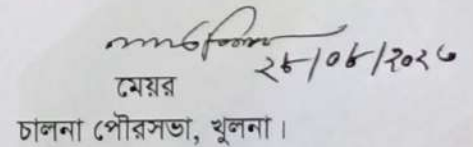 ২৮/০৮/২০২৩
মেয়র
চালনা পৌরসভা, খুলনা।